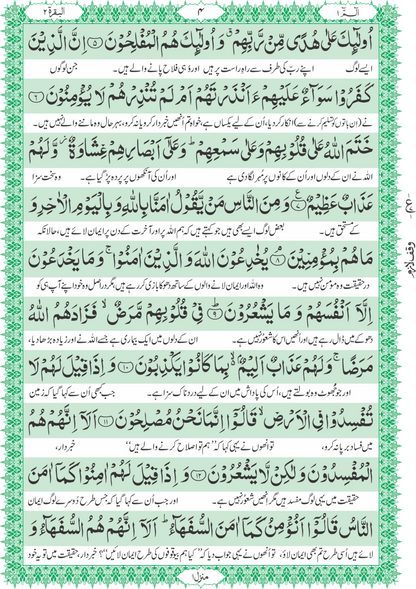 البقرة ٢
۴
الٓمّٓ ١
اُولٰٓئِكَ عَلٰى هُدًى مِّنْ رَّبِّهِمْ ۗ وَ اُولٰٓئِكَ هُمُ الْمُفْلِحُوْنَ ۝۵ اِنَّ الَّذِيْنَ
ایسے لوگ اپنے رب کی طرف سے راہِ راست پر ہیں اور وہی فلاح پانے والے ہیں۔ جن لوگوں
كَفَرُوْا سَوَآءٌ عَلَيْهِمْ ءَاَنْذَرْتَهُمْ اَمْ لَمْ تُنْذِرْهُمْ لَا يُؤْمِنُوْنَ ۝۶
نے (ان باتوں کو تسلیم کرنے سے) انکار کر دیا، اُن کے لیے یکساں ہے، خواہ تم اُنھیں خبردار کرو یا نہ کرو، بہرحال وہ ماننے والے نہیں ہیں۔
خَتَمَ اللّٰهُ عَلٰى قُلُوْبِهِمْ وَعَلٰى سَمْعِهِمْ ؕ وَعَلٰٓى اَبْصَارِهِمْ غِشَاوَةٌ ؗ وَّلَهُمْ
اللہ نے ان کے دلوں اور اُن کے کانوں پر مُہر لگا دی ہے اور اُن کی آنکھوں پر پردہ پڑ گیا ہے۔ وہ سخت سزا
عَذَابٌ عَظِيْمٌ ۝۷ وَمِنَ النَّاسِ مَنْ يَّقُوْلُ اٰمَنَّا بِاللّٰهِ وَبِالْيَوْمِ الْاٰخِرِ وَ
کے مستحق ہیں۔ بعض لوگ ایسے بھی ہیں جو کہتے ہیں کہ ہم اللہ پر اور آخرت کے دن پر ایمان لائے ہیں، حالانکہ
مَا هُمْ بِمُؤْمِنِيْنَ ۝۸ يُخٰدِعُوْنَ اللّٰهَ وَالَّذِيْنَ اٰمَنُوْا ۚ وَمَا يَخْدَعُوْنَ
در حقیقت وہ مومن نہیں ہیں۔ وہ اللہ اور ایمان لانے والوں کے ساتھ دھوکا بازی کر رہے ہیں، مگر دراصل وہ خود اپنے آپ ہی کو
اِلَّاۤ اَنْفُسَهُمْ وَ مَا يَشْعُرُوْنَ ۝۹ فِيْ قُلُوْبِهِمْ مَّرَضٌ ۙ فَزَادَهُمُ اللّٰهُ
دھوکے میں ڈال رہے ہیں اور اُنھیں اس کا شعور نہیں ہے۔ ان کے دلوں میں ایک بیماری ہے جسے اللہ نے اور زیادہ بڑھا دیا،
مَرَضًا ۚ وَلَهُمْ عَذَابٌ اَلِيْمٌۢ ۙ بِمَا كَانُوْا يَكْذِبُوْنَ ۝۱۰ وَ اِذَا قِيْلَ لَهُمْ لَا
اور جو جھوٹ وہ بولتے ہیں، اُس کی پاداش میں ان کے لیے دردناک سزا ہے۔ جب کبھی اُن سے کہا گیا کہ زمین
تُفْسِدُوْا فِي الْاَرْضِ ۙ قَالُوْۤا اِنَّمَا نَحْنُ مُصْلِحُوْنَ ۝۱۱ اَلَاۤ اِنَّهُمْ هُمُ
میں فساد برپا نہ کرو، تو اُنھوں نے یہی کہا کہ ”ہم تو اصلاح کرنے والے ہیں“ خبردار،
الْمُفْسِدُوْنَ وَلٰكِنْ لَّا يَشْعُرُوْنَ ۝۱۲ وَ اِذَا قِيْلَ لَهُمْ اٰمِنُوْا كَمَاۤ اٰمَنَ
حقیقت میں یہی لوگ مفسد ہیں مگر اُنھیں شعور نہیں ہے۔ اور جب اُن سے کہا گیا کہ جس طرح دُوسرے لوگ ایمان
النَّاسُ قَالُوْۤا اَنُؤْمِنُ كَمَاۤ اٰمَنَ السُّفَهَآءُ ؕ اَلَاۤ اِنَّهُمْ هُمُ السُّفَهَآءُ وَ
لائے ہیں اُسی طرح تم بھی ایمان لاؤ، تو اُنھوں نے یہی جواب دیا کہ ”کیا ہم بیوقوفوں کی طرح ایمان لائیں“؟ خبردار، حقیقت میں تو یہ خود
وقف لازم
منزل ۱